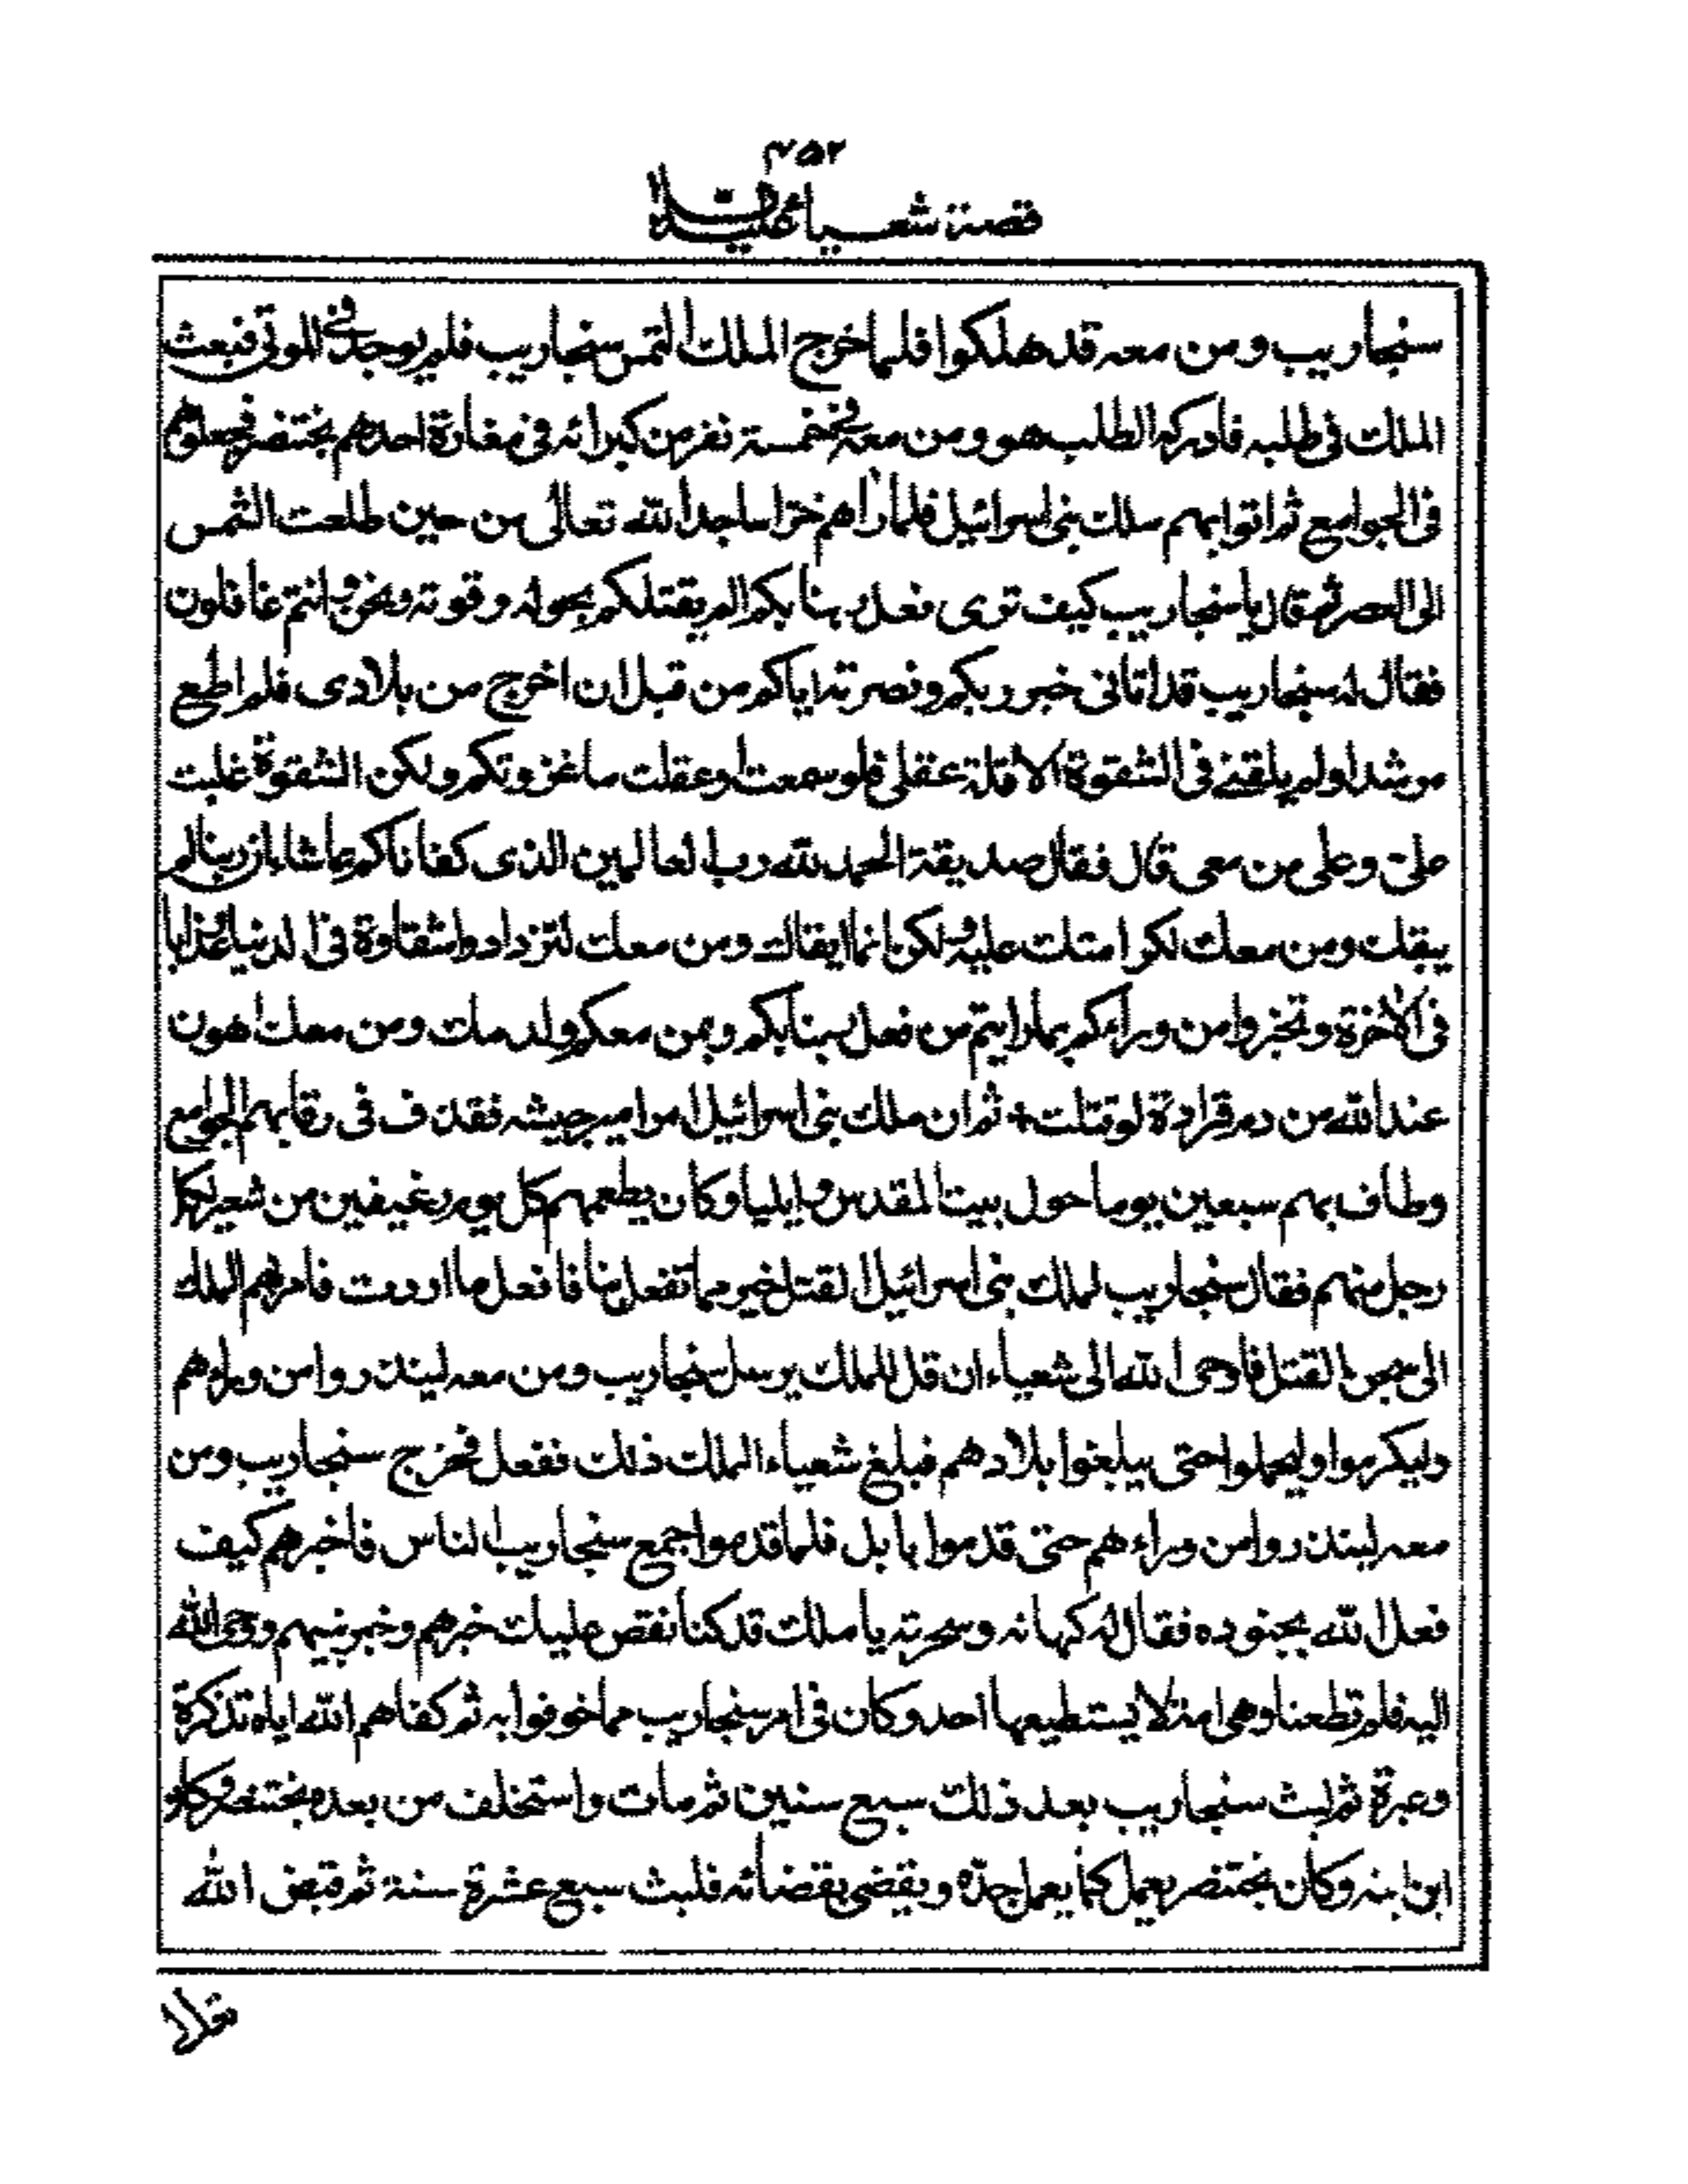 ٤٥٢
قصة شعياء عليه السلام
سنجاريب ومن معه قد هلكوا فلما خرج الملك التمس سنجاريب فلم يوجد في الموتى فبعث
الملك في طلبه فادركه الطلب هو ومن معه في خمسة نفر من كبرائه في مغارة احدهم بختنصر فجعلوهم
في الجوامع ثم اتوا بهم ملك بني اسرائيل فلما رأهم خر ساجدا لله تعالى من حين طلعت الشمس
الى العصر ثم قال يا سنجاريب كيف ترى فعل ربنا بكم الم يقتلكم بحوله وقوته ونحن وانتم غافلون
فقال له سنجاريب قد اتاني خبر ربكم ونصرته اياكم من قبل ان اخرج من بلادي فلم اطع
مرشدا ولم يلقني في الشقوة الا قلة عقلي فلو سمعت او عقلت ما غزوتكم ولكن الشقوة غلبت
علي وعلى من معي قال فقال صديقة الحمد لله رب العالمين الذي كفاناكم بما شاء ان ربنا لم
يبقك ومن معك لكرامتك عليه ولكن انما ابقاك ومن معك لتزدادوا شقاوة في الدنيا وعذابا
في الأخرة وتخبروا من وراءكم بما رايتم من فعل ربنا بكم وبمن معكم ولدمك ومن معك اهون
عند الله من دم قرادة لو قتلت + ثم ان ملك بني اسرائيل امر امير جيشه فقذف في رقابهم الجوامع
وطاف بهم سبعين يوما حول بيت المقدس وايليا وكان يطعمهم كل يوم رغيفين من شعير لكل
رجل منهم فقال سنجاريب لملك بني اسرائيل القتل خير مما تفعل بنا فافعل ما اردت فامر بهم الملك
الى سجن القتل فاوحى الله الى شعياء ان قل للملك يرسل سنجاريب ومن معه لينذروا من وراءهم
وليكرموا وليحملوا حتى يبلغوا بلادهم فبلغ شعياء الملك ذلك ففعل فخرج سنجاريب ومن
معه لينذروا من وراءهم حتى قدموا بابل فلما قدموا جمع سنجاريب الناس فاخبرهم كيف
فعل الله بجنوده فقال له كهانه وسحرته يا ملك قد كنا نقص عليك خبرهم وخبر نبيهم ووحي الله
اليه فلم تطعنا وهي امة لا يستطيعها احد وكان في امر سنجاريب مما خوفوا به ثم كفاهم الله اياه تذكرة
وعبرة ثم لبث سنجاريب بعد ذلك سبع سنين ثم مات واستخلف من بعده بختنصر وكان
ابن ابنه وكان بختنصر يعمل كما يعمل جده ويقضي بقضائه فلبث سبع عشرة سنة ثم قبض الله